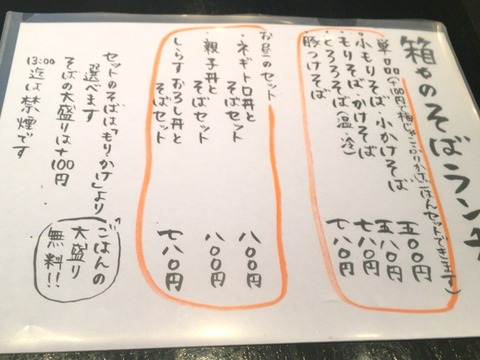 箱やのそばラン
単品(+100円で梅じゃこふりかけごはんセットできます)
小もりそば・小かけそば 五〇〇円
もりそば・かけそば 五八〇円
とろろそば(温・冷) 七八〇円
豚つけそば 七八〇円
お昼のセット
・ネギトロ丼と
そばセット 八〇〇円
・親子丼と
そばセット 八〇〇円
・しらすおろし丼と
そばセット 七八〇円
セットのそばは「もりかけ」より
選べます
そばの大盛りは+100円
13:00迄は禁煙です
ごはんの
大盛り
無料!!